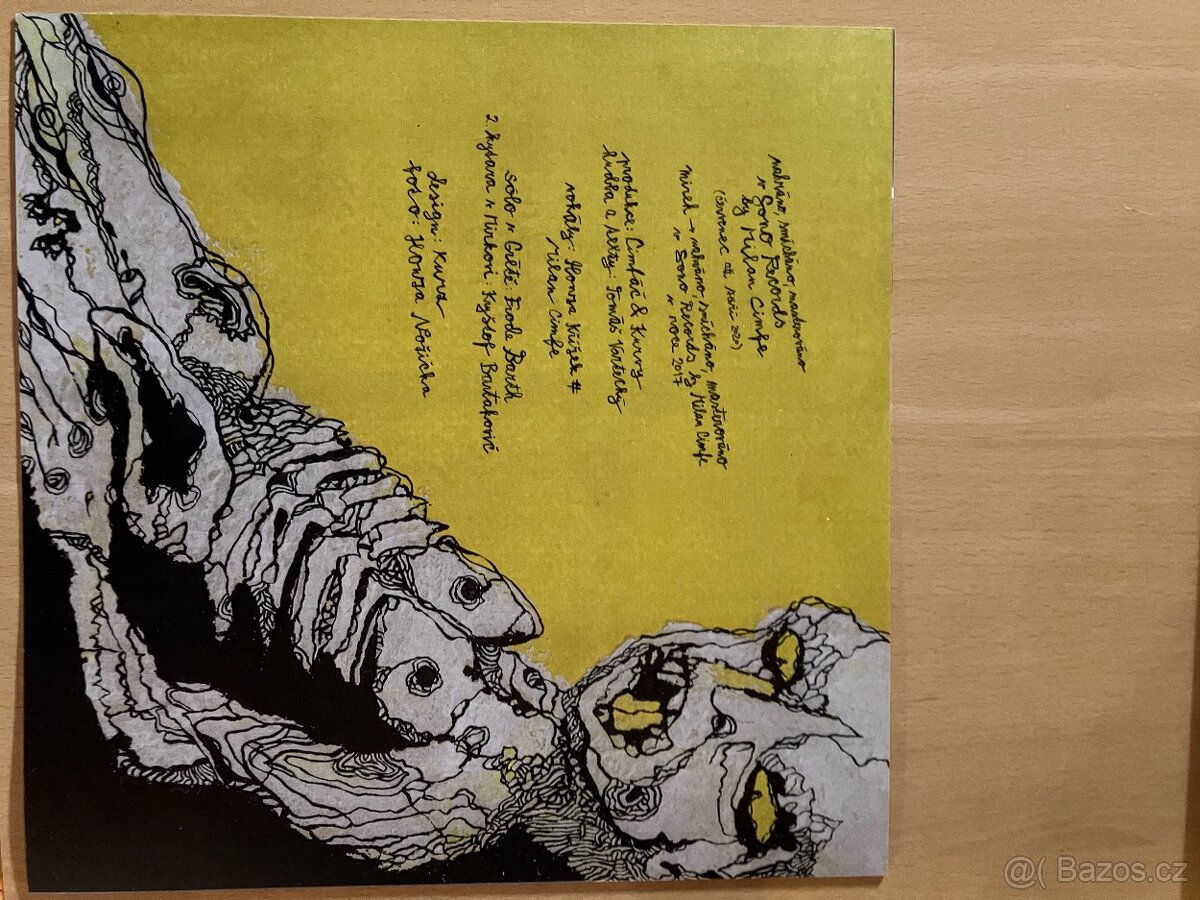 nahráno, smícháno, masterováno
v Sono Records
by Milan Cimfe
(červenec až září 2020)
mirek → nahráno, smícháno, masterováno
v Sono Records by Milan Cimfe
v roce 2017
produkce: Cimbáč & Kurvy
hudba a texty: Tomáš Vartecký
vokály: Honza Křížek #
Milan Cimfe
sólo v Grétě: Frode Barth
2. kytara v Mirkovi: Kryštof Bartakovič
design: kurz
foto: Honza Nožička
@( Bazos.cz